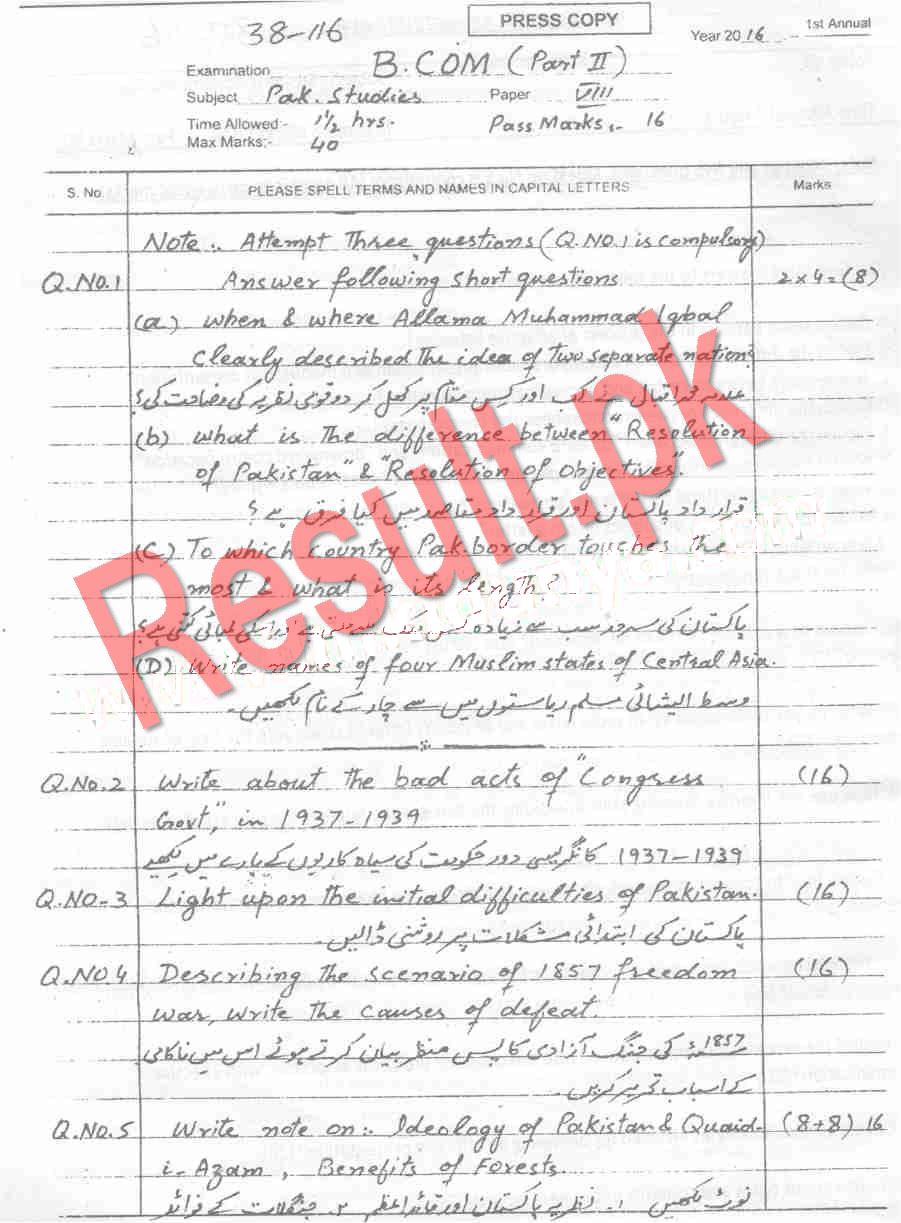 PRESS COPY
38-116
Year 2016 1st Annual
Examination B.COM (Part II)
Subject Pak. Studies Paper VIII
Time Allowed:- 1½ hrs. Pass Marks:- 16
Max Marks:- 40
S. No. PLEASE SPELL TERMS AND NAMES IN CAPITAL LETTERS Marks
Note:. Attempt Three questions (Q.NO.1 is compulsory)
Q.NO.1 Answer following short questions 2 x 4 = (8)
(a) when & where Allama Muhammad Iqbal
Clearly described the idea of two separate nation?
علامہ محمد اقبال نے کب اور کس مقام پر کھل کر دو قومی نظریہ کی وضاحت کی؟
(b) what is the difference between "Resolution
of Pakistan" & "Resolution of Objectives".
قرار داد پاکستان اور قرار داد مقاصد میں کیا فرق ہے؟
(C) To which country Pak-border touches the
most & what is its length?
پاکستان کی سرحد سب سے زیادہ کس ملک سے ملتی ہے اور اسکی لمبائی کتنی ہے؟
(D) Write names of four Muslim states of Central Asia.
وسط ایشائی مسلم ریاستوں میں سے چار کے نام لکھیں۔
Q.NO.2 Write about the bad acts of "Congress (16)
Govt", in 1937-1939
1937-1939 کانگریسی دور حکومت کی سیاہ کاریوں کے بارے میں لکھیے
Q.NO-3 Light upon the initial difficulties of Pakistan. (16)
پاکستان کی ابتدائی مشکلات پر روشنی ڈالیں۔
Q.NO.4 Describing the scenario of 1857 freedom (16)
war, write the causes of defeat.
1857ء کی جنگ آزادی کا پس منظر بیان کرتے ہوئے اس میں ناکامی
کے اسباب تحریر کریں۔
Q.NO.5 Write note on:. Ideology of Pakistan & Quaid- (8+8) 16
i-Azam, Benefits of Forests.
نوٹ لکھیں ۱۔ نظریہ پاکستان اور قائداعظم ۲۔ جنگلات کے فوائد
Result.pk